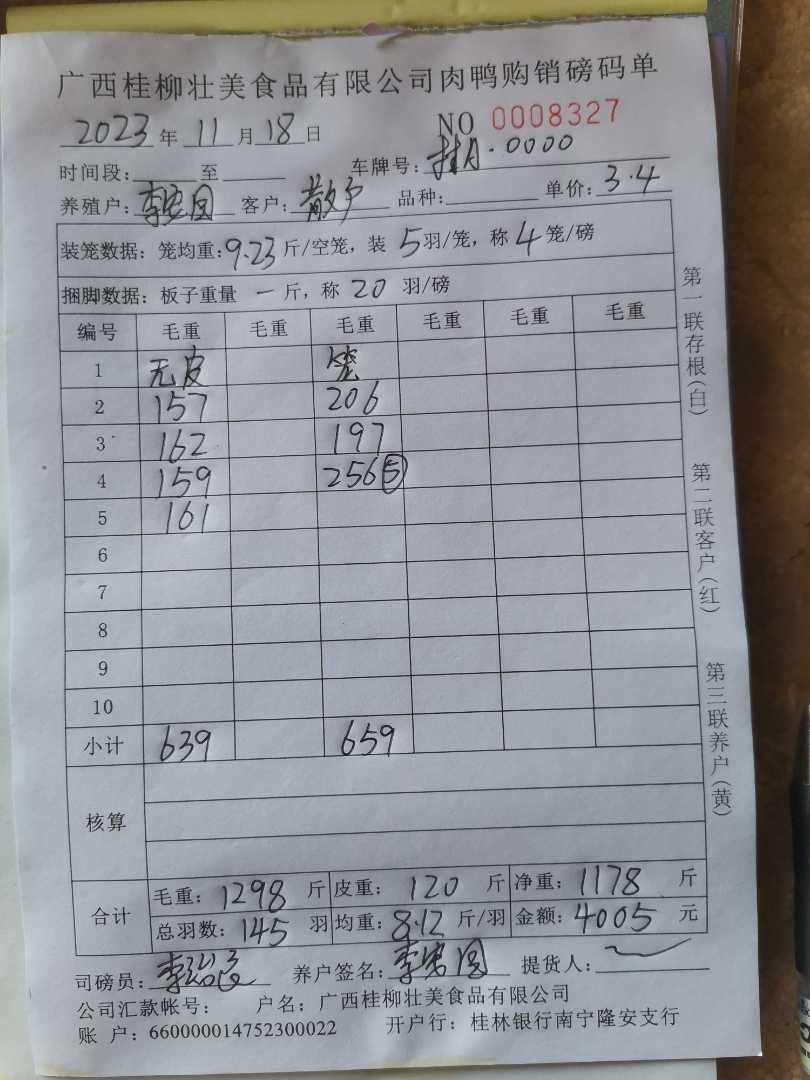 广西桂柳壮美食品有限公司肉鸭购销磅码单
2023年11月18日 NO 0008327
时间段: 至 车牌号: 桂A·0000
养殖户: 李宏图 客户: 散户 品种: 单价: 3.4
装笼数据: 笼均重: 9.23斤/空笼, 装5羽/笼, 称4笼/磅
捆脚数据: 板子重量 一 斤, 称 20 羽/磅
编号 毛重 毛重 毛重 毛重 毛重 毛重
1 无皮 笼
2 157 206
3 162 197
4 159 256⑤
5 161
6
7
8
9
10
小计 639 659
核算
合计 毛重: 1298斤 皮重: 120斤 净重: 1178斤
总羽数: 145羽 均重: 8.12斤/羽 金额: 4005元
司磅员: 养户签名: 李宏图 提货人:
公司汇款帐号: 户名: 广西桂柳壮美食品有限公司
账 户: 660000014752300022 开户行: 桂林银行南宁隆安支行
第一联存根(白) 第二联客户(红) 第三联养户(黄)